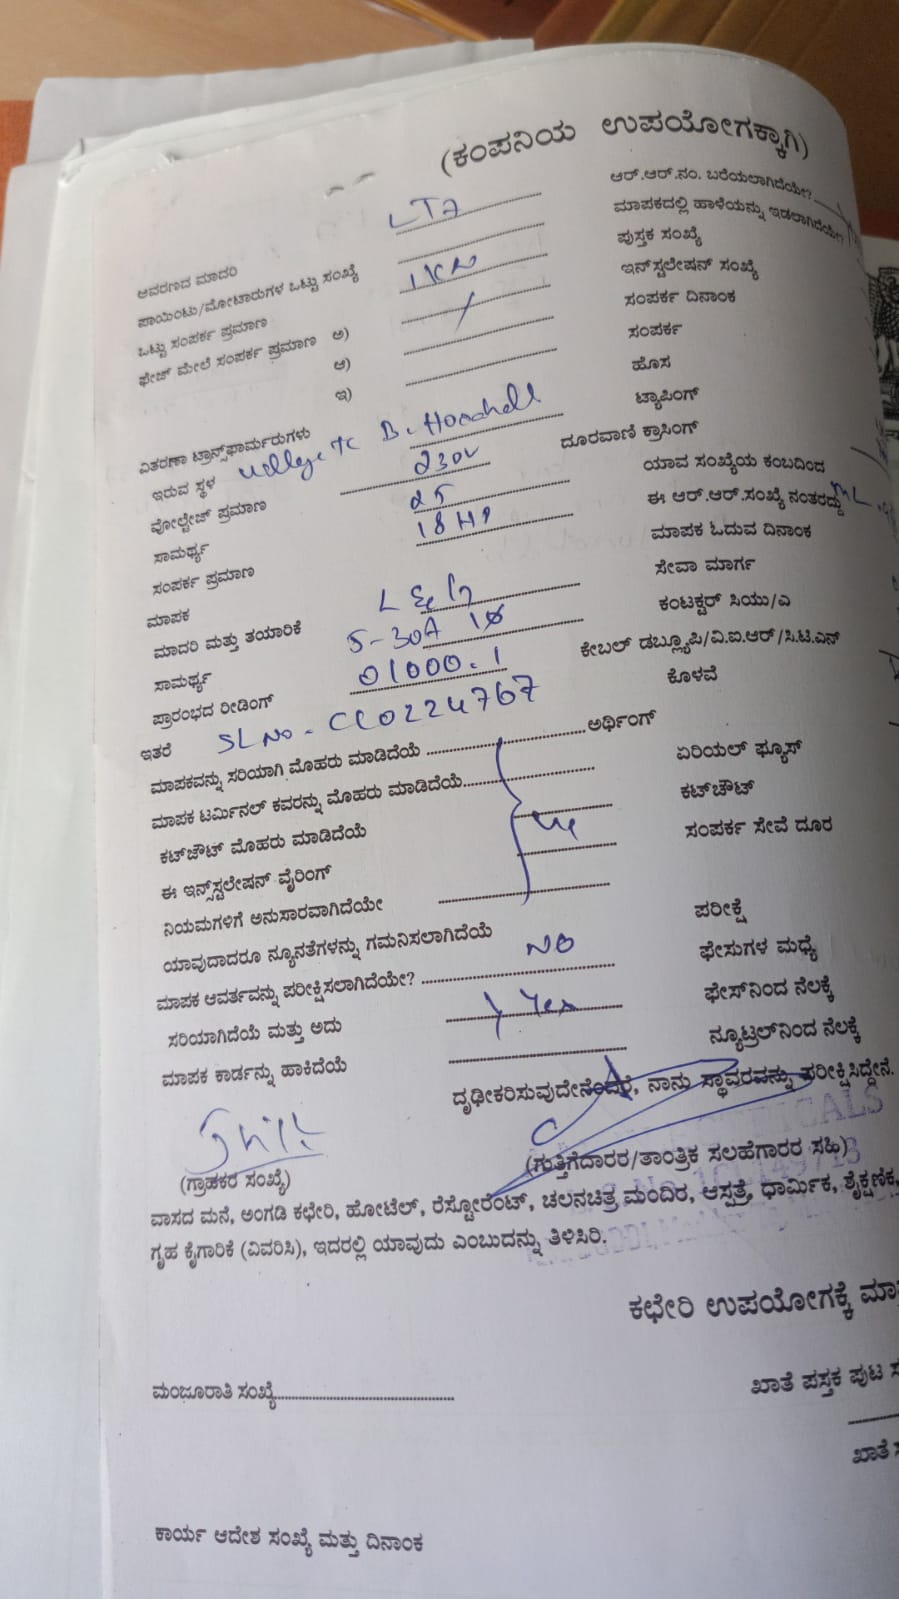 (ಕಂಪನಿಯ ಉಪಯೋಗಕ್ಕಾಗಿ)
ಆವರಣದ ಮಾದರಿ LT7 ಆರ್.ಆರ್.ನಂ. ಬರೆಯಲಾಗಿದೆಯೇ?
ಪಾಯಿಂಟು/ಮೋಟಾರುಗಳ ಒಟ್ಟು ಸಂಖ್ಯೆ ಮಾಪಕದಲ್ಲಿ ಹಾಳೆಯನ್ನು ಇಡಲಾಗಿದೆಯೇ?
ಒಟ್ಟು ಸಂಪರ್ಕ ಪ್ರಮಾಣ ಪುಸ್ತಕ ಸಂಖ್ಯೆ
ಫೇಜ್ ಮೇಲೆ ಸಂಪರ್ಕ ಪ್ರಮಾಣ ಅ) ಇನ್‌ಸ್ಟಲೇಷನ್ ಸಂಖ್ಯೆ
ಆ) ಸಂಪರ್ಕ ದಿನಾಂಕ
ಇ) ಸಂಪರ್ಕ
ಹೊಸ
ವಿತರಣಾ ಟ್ರಾನ್ಸ್‌ಫಾರ್ಮರುಗಳು ಟ್ಯಾಪಿಂಗ್
ಇರುವ ಸ್ಥಳ ದೂರವಾಣಿ ಕ್ರಾಸಿಂಗ್
ವೋಲ್ಟೇಜ್ ಪ್ರಮಾಣ 230V ಯಾವ ಸಂಖ್ಯೆಯ ಕಂಬದಿಂದ
ಸಾಮರ್ಥ್ಯ 25 ಈ ಆರ್.ಆರ್.ಸಂಖ್ಯೆ ನಂತರದ್ದು
ಸಂಪರ್ಕ ಪ್ರಮಾಣ 18 HP ಮಾಪಕ ಓದುವ ದಿನಾಂಕ
ಮಾಪಕ ಸೇವಾ ಮಾರ್ಗ
ಮಾದರಿ ಮತ್ತು ತಯಾರಿಕೆ L & G ಕಂಟಕ್ಟರ್ ಸಿಯು/ಎ
ಸಾಮರ್ಥ್ಯ 5-30A 1ϕ ಕೇಬಲ್ ಡಬ್ಲ್ಯೂಪಿ/ವಿ.ಐ.ಆರ್/ಸಿ.ಟಿ.ಎನ್
ಪ್ರಾರಂಭದ ರೀಡಿಂಗ್ 01000.1 ಕೊಳವೆ
ಇತರೆ SL No - CC0224767
ಮಾಪಕವನ್ನು ಸರಿಯಾಗಿ ಮೊಹರು ಮಾಡಿದೆಯೆ ಅರ್ಥಿಂಗ್
ಮಾಪಕ ಟರ್ಮಿನಲ್ ಕವರನ್ನು ಮೊಹರು ಮಾಡಿದೆಯೆ ಏರಿಯಲ್ ಫ್ಯೂಸ್
ಕಟ್‌ಔಟ್ ಮೊಹರು ಮಾಡಿದೆಯೆ ಕಟ್‌ಔಟ್
ಈ ಇನ್ಸ್‌ಸ್ಟಲೇಷನ್ ವೈರಿಂಗ್ ಸಂಪರ್ಕ ಸೇವೆ ದೂರ
ನಿಯಮಗಳಿಗೆ ಅನುಸಾರವಾಗಿದೆಯೇ
ಯಾವುದಾದರೂ ನ್ಯೂನತೆಗಳನ್ನು ಗಮನಿಸಲಾಗಿದೆಯೆ ಪರೀಕ್ಷೆ
ಮಾಪಕ ಆವರ್ತವನ್ನು ಪರೀಕ್ಷಿಸಲಾಗಿದೆಯೇ? NO ಫೇಸುಗಳ ಮಧ್ಯೆ
ಸರಿಯಾಗಿದೆಯೆ ಮತ್ತು ಅದು Yes ಫೇಸ್‌ನಿಂದ ನೆಲಕ್ಕೆ
ಮಾಪಕ ಕಾರ್ಡನ್ನು ಹಾಕಿದೆಯೆ ನ್ಯೂಟ್ರಲ್‌ನಿಂದ ನೆಲಕ್ಕೆ
ದೃಢೀಕರಿಸುವುದೇನೆಂದರೆ, ನಾನು ಸ್ಥಾವರವನ್ನು ಪರೀಕ್ಷಿಸಿದ್ದೇನೆ.
(ಗ್ರಾಹಕರ ಸಂಖ್ಯೆ) (ಗುತ್ತಿಗೆದಾರರ/ತಾಂತ್ರಿಕ ಸಲಹೆಗಾರರ ಸಹಿ)
ವಾಸದ ಮನೆ, ಅಂಗಡಿ ಕಛೇರಿ, ಹೋಟೆಲ್, ರೆಸ್ಟೋರೆಂಟ್, ಚಲನಚಿತ್ರ ಮಂದಿರ, ಆಸ್ಪತ್ರೆ, ಧಾರ್ಮಿಕ, ಶೈಕ್ಷಣಿಕ,
ಗೃಹ ಕೈಗಾರಿಕೆ (ವಿವರಿಸಿ), ಇದರಲ್ಲಿ ಯಾವುದು ಎಂಬುದನ್ನು ತಿಳಿಸಿರಿ.
ಕಛೇರಿ ಉಪಯೋಗಕ್ಕೆ
ಮಂಜೂರಾತಿ ಸಂಖ್ಯೆ ಖಾತೆ ಪಸ್ತಕ ಪುಟ
ಖಾತೆ
ಕಾರ್ಯ ಆದೇಶ ಸಂಖ್ಯೆ ಮತ್ತು ದಿನಾಂಕ